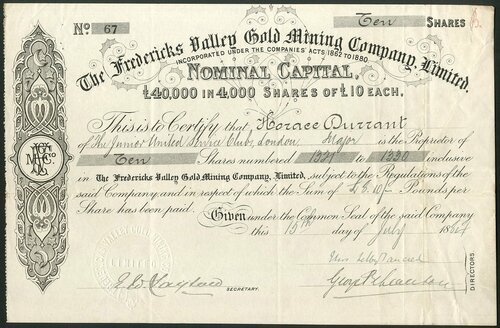 No 67 Ten SHARES
The Fredericks Valley Gold Mining Company, Limited.
INCORPORATED UNDER THE COMPANIES' ACTS 1862 TO 1880.
NOMINAL CAPITAL,
£40,000 IN 4,000 SHARES OF £10 EACH.
This is to Certify that Horace Durrant
of The Junior United Service Club, London Major is the Proprietor of
Ten Shares numbered 1321 to 1330 inclusive
in The Fredericks Valley Gold Mining Company, Limited, subject to the Regulations of the
said Company, and in respect of which the Sum of Pounds per
Share has been paid.
Given under the Common Seal of the said Company
this 15th day of July
SECRETARY.
DIRECTORS